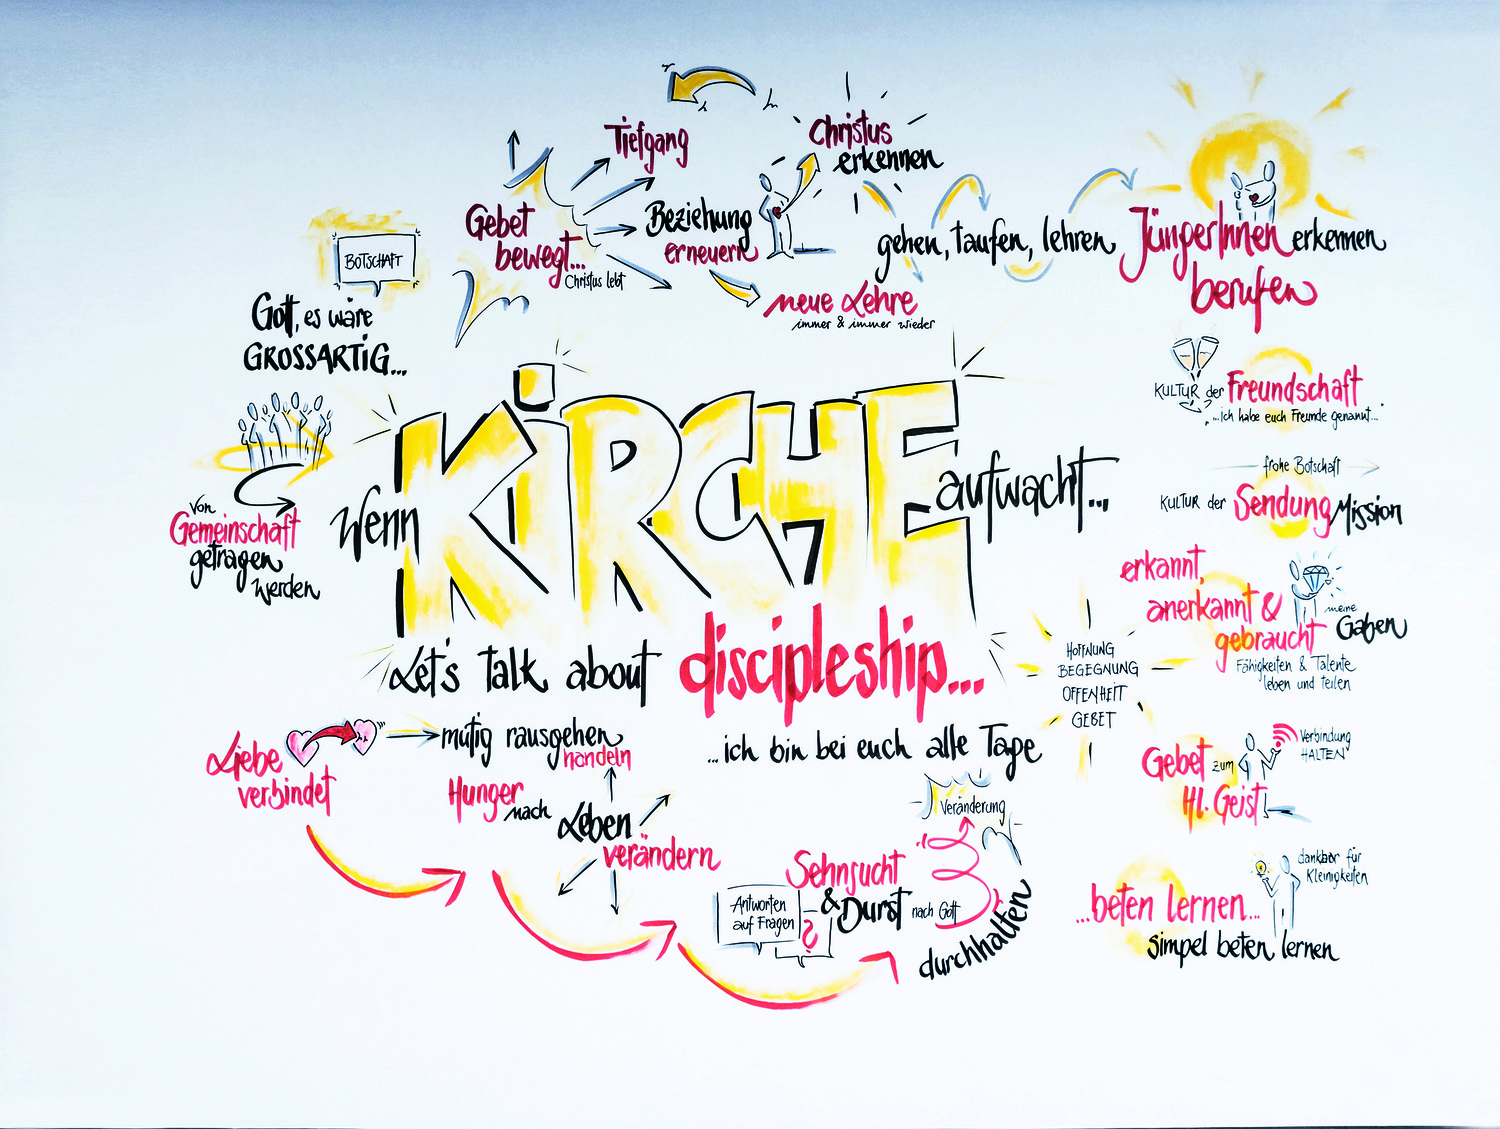 BOTSCHAFT
Gott, es wäre
GROSSARTIG...
von
Gemeinschaft
getragen
werden
Gebet
bewegt...
Christus lebt
Tiefgang
Beziehung
erneuern
neue Lehre
immer & immer wieder
Christus
erkennen
gehen, taufen, lehren
JüngerInnen erkennen
berufen
Wenn
KiRCHE
aufwacht...
Let's talk about discipleship...
...ich bin bei euch alle Tage
HOFFNUNG
BEGEGNUNG
OFFENHEIT
GEBET
KULTUR der Freundschaft
...ich habe euch Freunde genannt...
frohe Botschaft
KULTUR der Sendung Mission
erkannt,
anerkannt &
gebraucht
meine
Gaben
Fähigkeiten & Talente
leben und teilen
Gebet zum
Hl. Geist
Verbindung
HALTEN
...beten lernen...
simpel beten lernen
dankbar für
Kleinigkeiten
Liebe
verbindet
mutig rausgehen
handeln
Hunger nach Leben
verändern
Antworten
auf Fragen
?
Sehnsucht
& Durst nach Gott
durchhalten
Veränderung